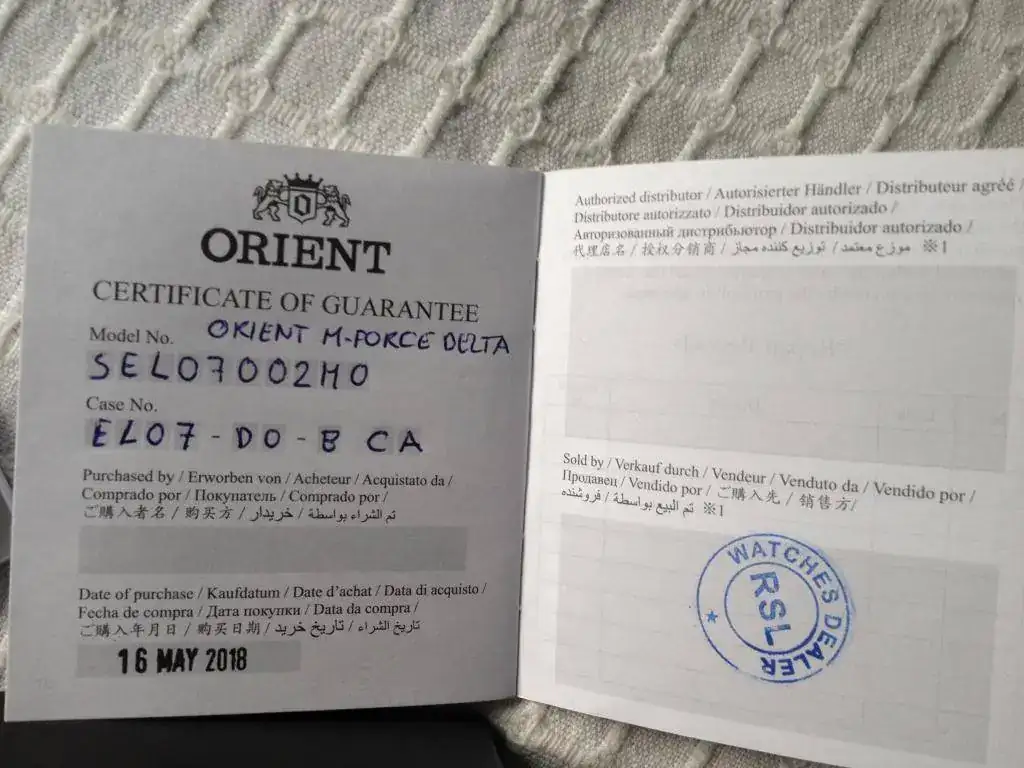 ORIENT
CERTIFICATE OF GUARANTEE
Model No. ORIENT M-FORCE DELTA
SEL07002M0
Case No.
EL07-D0-B CA
Purchased by / Erworben von / Acheteur / Acquistato da /
Comprado por / Покупатель / Comprado por /
ご購入者名 / 购买方 / خریدار / تم الشراء بواسطة
Date of purchase / Kaufdatum / Date d'achat / Data di acquisto /
Fecha de compra / Дата покупки / Data da compra /
ご購入年月日 / 购买日期 / تاریخ خرید / تاريخ الشراء
16 MAY 2018
Authorized distributor / Autorisierter Händler / Distributeur agréé /
Distributore autorizzato / Distribuidor autorizado /
Авторизованный дистрибьютор / Distribuidor autorizado /
代理店名 / 授权分销商 / توزیع کننده مجاز / موزع معتمد ※1
Sold by / Verkauf durch / Vendeur / Venduto da / Vendido por /
Продавец / Vendido por / ご購入先 / 销售方 /
فروشنده / تم البيع بواسطة ※1
WATCHES DEALER
RSL